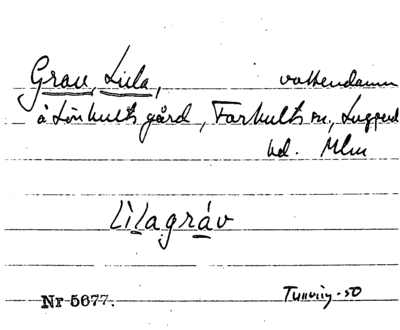 Grav, Lilla, vattendamm
å Lönhults gård, Farhults sn., Luggude
hd. Mlm
lìlagráv
Nr 5677.
-50